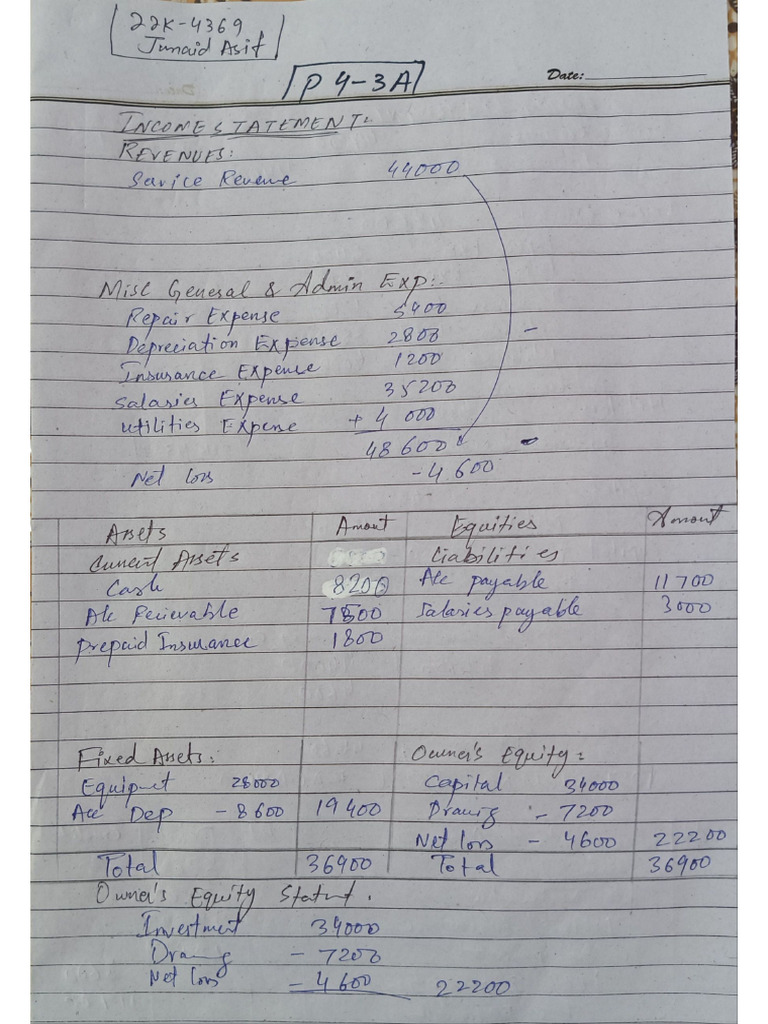 22K-4369
Junaid Asif
P 4-3A
Date:
INCOME STATEMENT:
REVENUES:
Service Revenue 44000
Misc General & Admin Exp:
Repair Expense 5400
Depreciation Expense 2800
Insurance Expense 1200
Salaries Expense 35200
Utilities Expense + 4 000
48600 -
Net loss -4600
Assets Amout Equities Amout
Current Assets Liabilities
Cash 8200 A/c payable 11700
A/c Recievable 7500 Salaries payable 3000
Prepaid Insurance 1800
Fixed Assets: Owner's Equity:
Equipmt 28000 Capital 34000
Acc Dep - 8600 19400 Drawig - 7200
Net loss - 4600 22200
Total 36900 Total 36900
Owner's Equity Statmt.
Investment 34000
Drawig - 7200
Net loss - 4600 22200